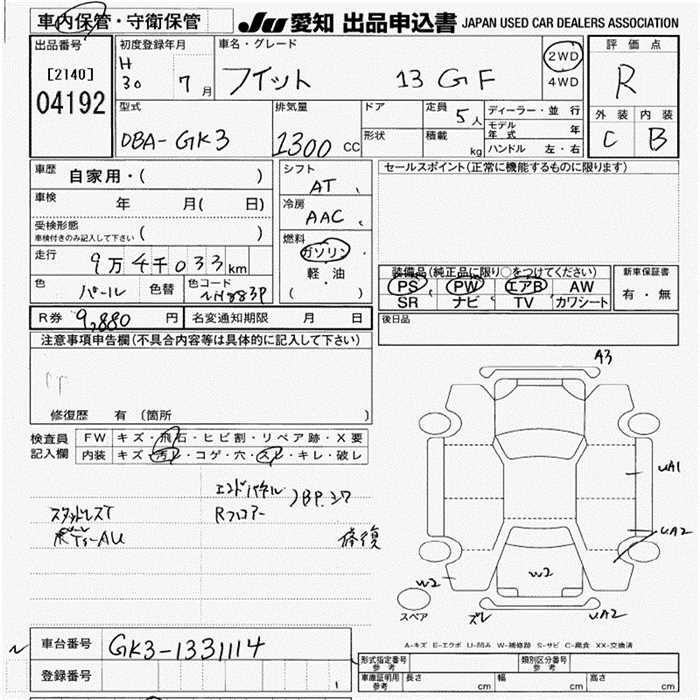 車内保管・守衛保管
JU 愛知 出品申込書 JAPAN USED CAR DEALERS ASSOCIATION
出品番号
[2140]
04192
初度登録年月
H
30 7 月
車名・グレード
フィット 13 G F
2WD
4WD
評 価 点
R
外 装 内 装
C B
型式
DBA-GK3
排気量
1300 CC
ドア
形状
定員
5人
積載
kg
ディーラー・並 行
モデル年式 年
ハンドル 左・右
車歴
自家用・( )
車検
年 月( 日)
受検形態
車検付きのみ記入して下さい ( )
走行
9万4千033km
色 パール 色替 色コード NH883P
シフト
AT
冷房
AAC
燃料
ガソリン
軽 油
( )
セールスポイント(正常に機能するものに限ります)
装備品(純正品に限り○をつけてください)
PS PW エアB AW
SR ナビ TV カワシート
新車保証書
有・無
R券 9,880 円 名変通知期限 月 日
後日品
注意事項申告欄(不具合内容等は具体的に記入して下さい)
修復歴 有 (箇所 )
検査員
記入欄
FW キズ・飛石・ヒビ割・リペア跡・X要
内装 キズ・汚れ・コゲ・穴・スレ・キレ・破レ
エンドパネル
Rフロアー
JBP.スワ
スタッドレスT
修復
A3
UA1
UA2
W2
W2
ズレ
UA2
スペア
A-キズ E-エクボ U-凹み W-補修跡 S-サビ C-腐食 XX-交換済
車台番号 GK3-1331114
登録番号
形式指定番号
参考
類別区分番号
参考
車庫証明用
参考
長さ cm 幅 cm 高さ cm